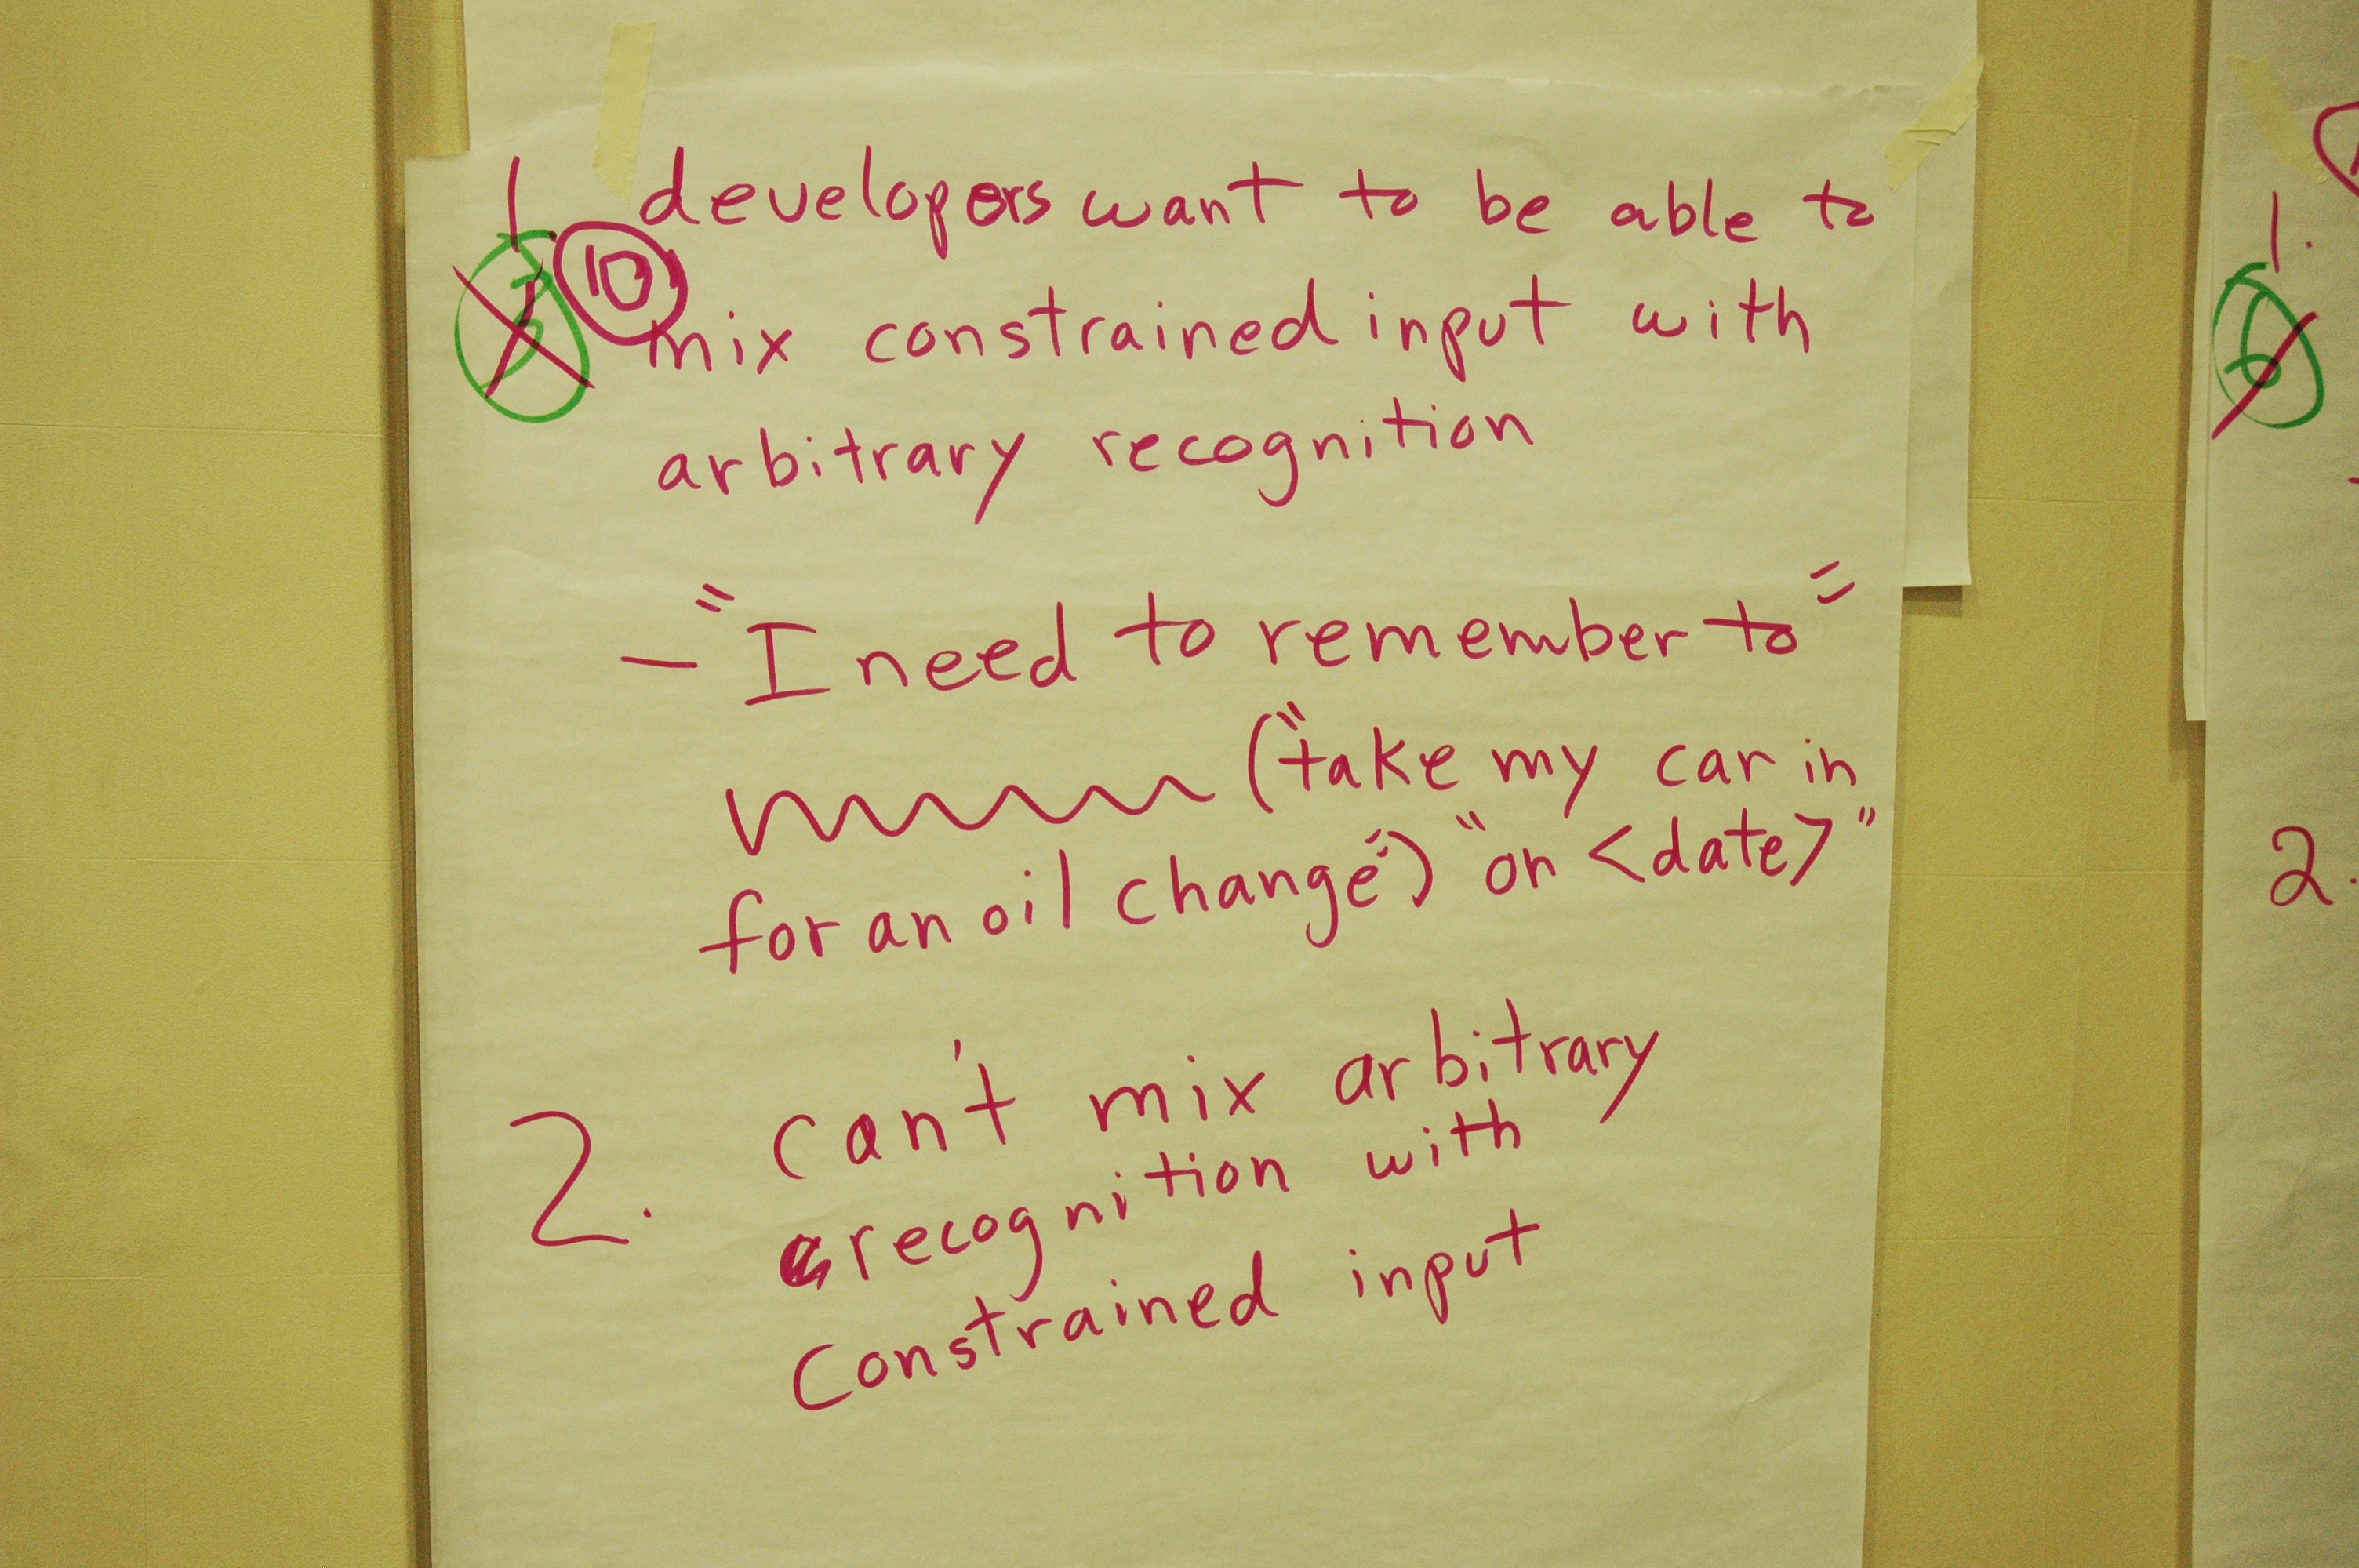 1 developers want to be able to
10
mix constrained input with
arbitrary recognition
— "I need to remember to"
("take my car in
for an oil change") "on <date>"
2. can't mix arbitrary
recognition with
constrained input
1.
6
2.